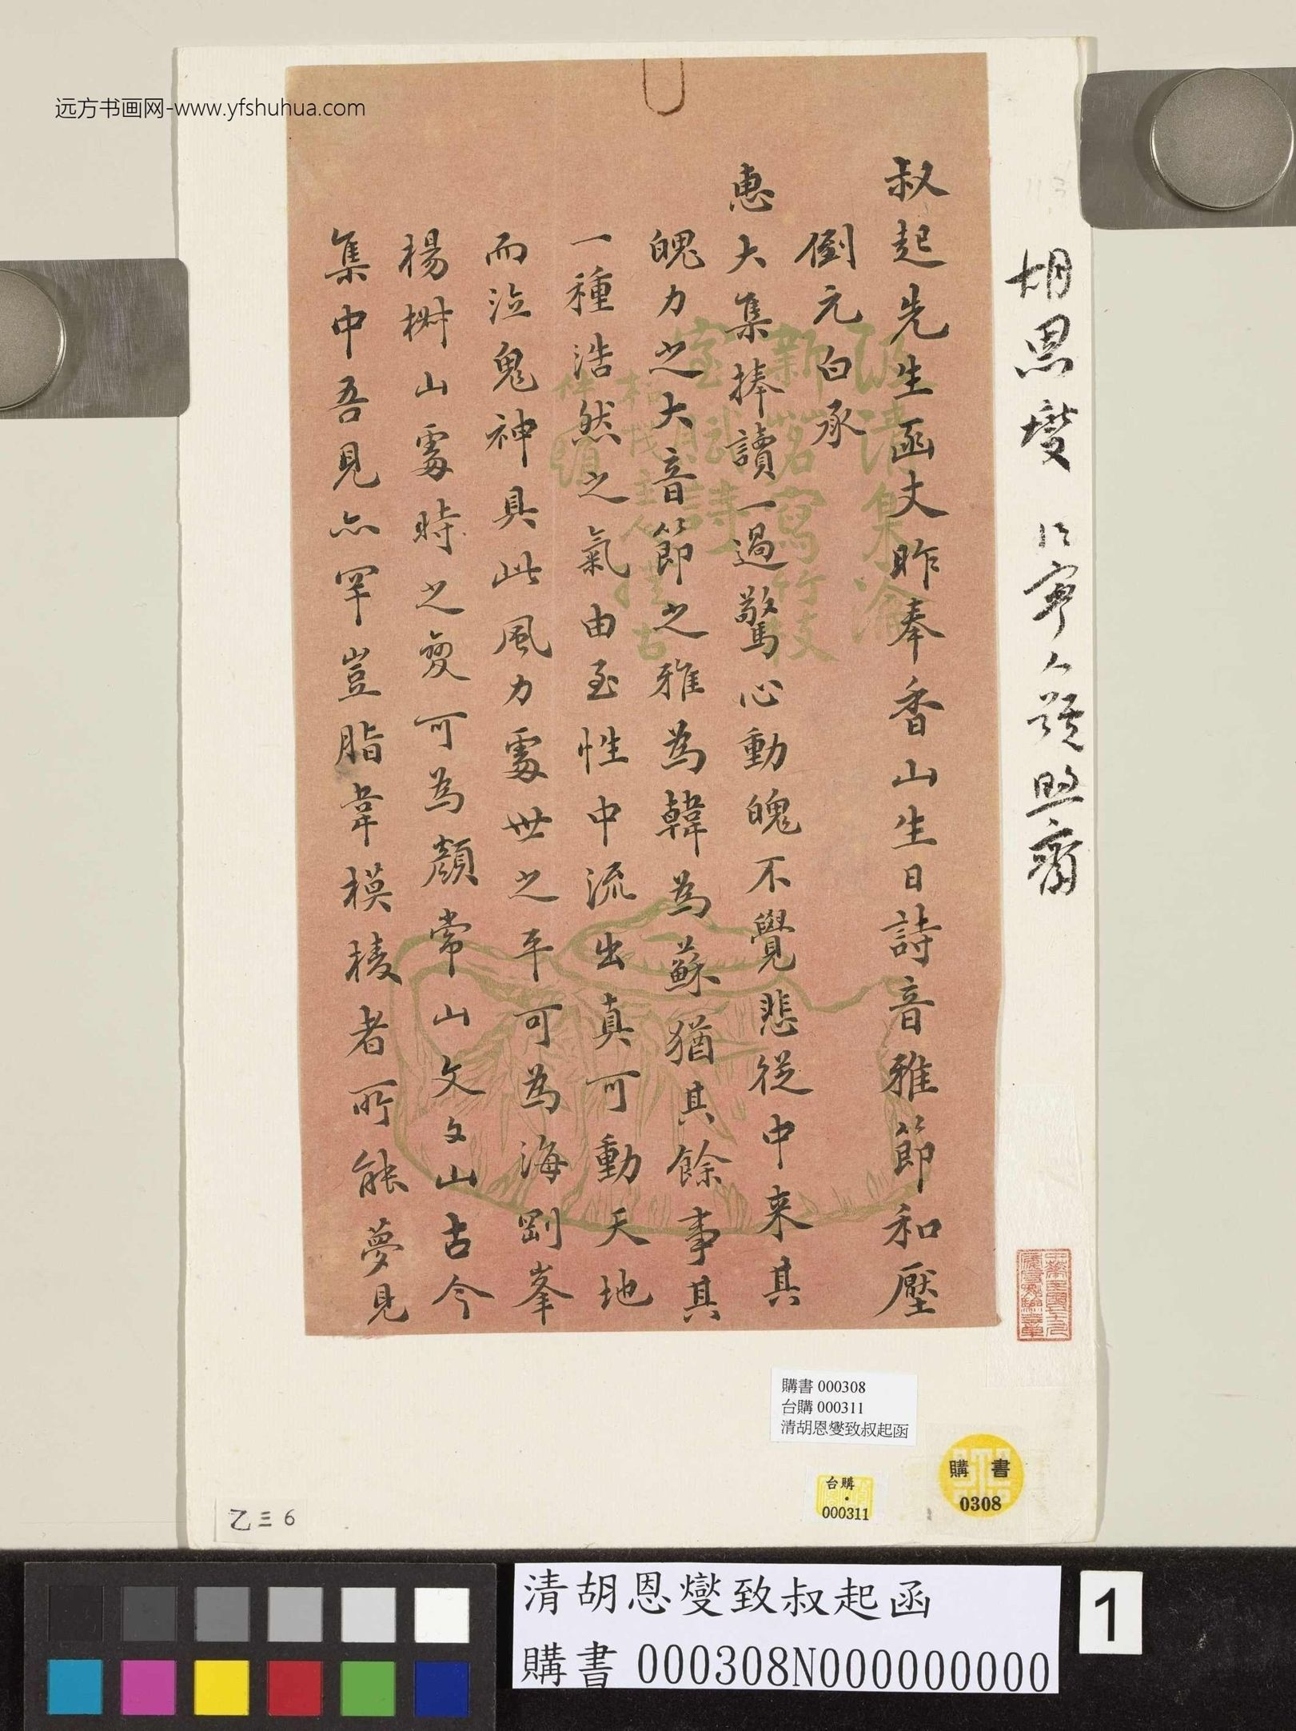 远方书画网-www.yfshuhua.com
叔起先生函丈昨奉香山生日詩音雅節和壓
倒元白承
惠大集捧讀一過驚心動魄不覺悲從中来其
魄力之大音節之雅為韓為蘇猶其餘事其
一種浩然之氣由至性中流出真可動天地
而泣鬼神具此風力處世之平可為海剛峯
楊椒山處時之变可為顏常山文文山古今
集中吾見亦罕豈脂韋模棱者所能夢見
胡恩燮 江寧人號煦齋
購書 000308
台購 000311
清胡恩燮致叔起函
購書
0308
台購
000311
乙三6
清胡恩燮致叔起函
購書 000308N000000000
1